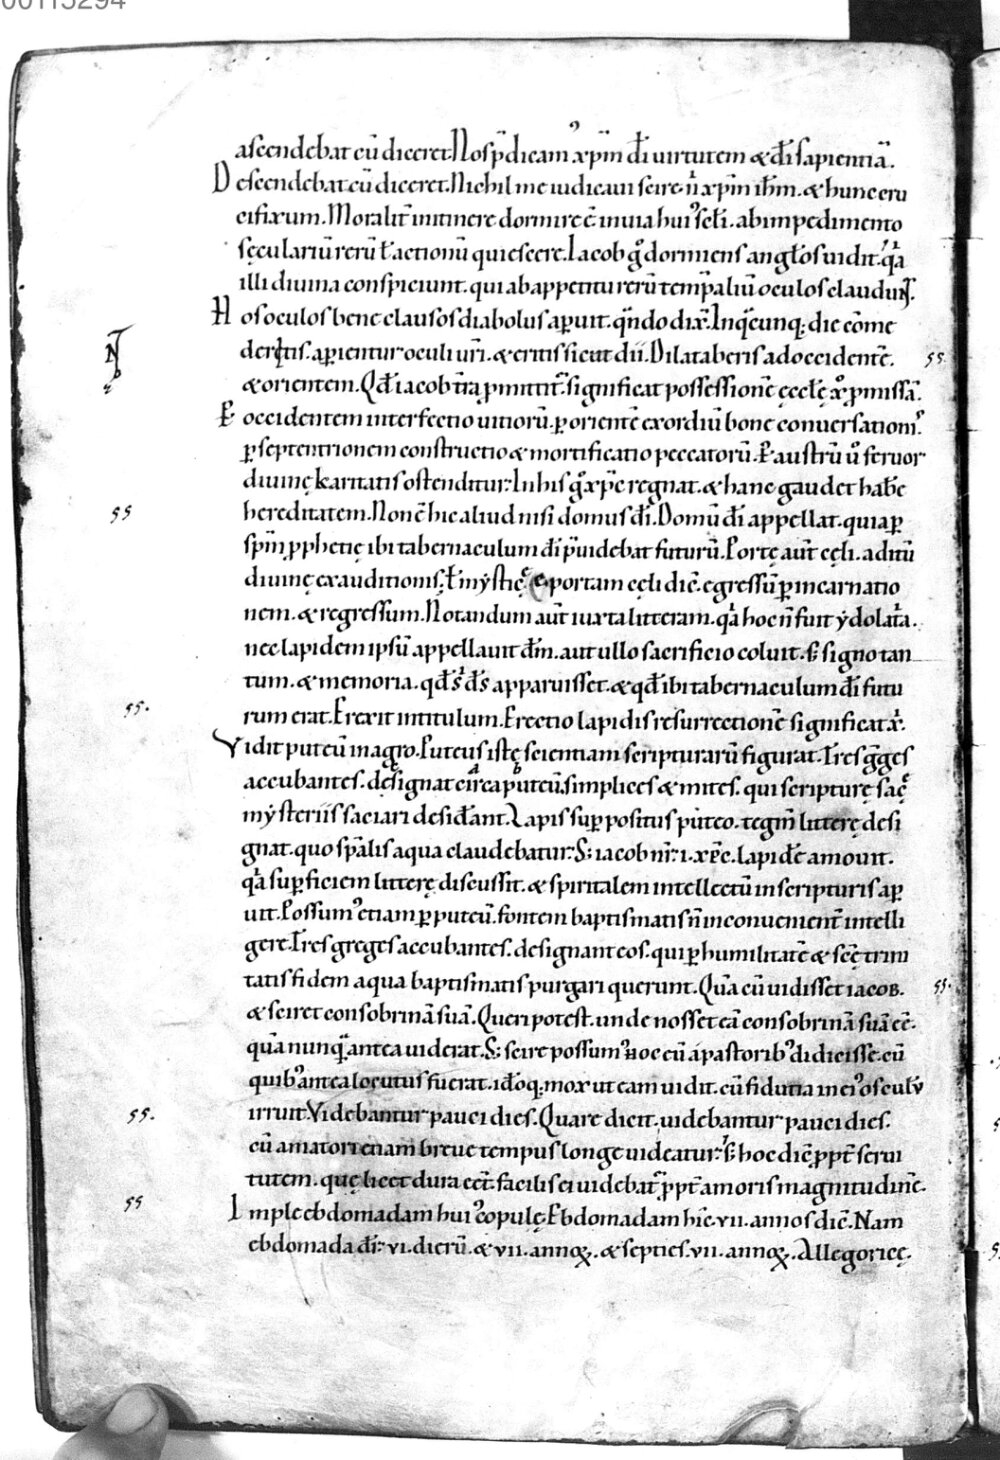 ascendebat cū diceret. Nos p̄dicam᾿ xp̄m dī uirtutem & dī sapientiā.
Descendebat cū diceret. Nichil me iudicaui scire n̄ xp̄m ih̄m. & hunc cru
cifixum. Moralit̄ in itinere dormire ē in uia hui᾿ sc̄li. ab impedimento
sęculariū rerū ł actionū quiescere. Iacob g̊ dormiens angłos uidit. q̓a
illi diuina conspiciunt. qui ab appetitu rerū temp̄aliū oculos claudunt.
Hos oculos bene clausos diabolus aꝑuit. q̄ndo dix̄. Inq̄cunq; die come
deritis. aꝑientur oculi ur̄i. & eritis sicut dii. Dilataberis ad occidentē.
& orientem. Qd̄ iacob t̄ra ꝓmittit̄. significat possessionē ęccłę xp̊ ꝓmissā.
P occidentem interfectio uitiorū. ꝑ orientē exordiū bone conuersationis.
ꝑ septentrionem constructio & mortificatio peccatorū. P austrū u᾿ feruor
diuinę karitatis ostenditur. In his g̊ xp̄c regnat. & hanc gaudet hab̄e
hereditatem. Non ē hic aliud nisi domus dī. Domū dī appellat. quia ꝑ
sp̄m ꝓphetię ibi tabernaculum dī p̄uidebat futurū. Portę aut̄ cęli. aditū
diuinę exauditionis. ł mẏsticę portam cęli dic̄. egressū ꝑ incarnatio
nem. & regressum. Notandum aut̄ iuxta litteram. q̓a hoc n̄ fuit ẏdolat̓a.
nec lapidem ipsū appellauit dm̄. aut ullo sacrificio coluit. s; signo tan
tum. & memoria. qd̄ s᾿ ds̄ apparuisset. & qd̄ ibi tabernaculum dī futu
rum erat. Erexit in titulum. Erectio lapidis resurrectionē significat xp̄i.
Vidit puteū in agro. Puteus istę scientiam scripturarū figurat. Tres gręges
accubantes. designat circa puteū. simplices & mites. qui scripturę sac̄ę
mẏsteriis saciari desid̄ant. Lapis suꝑ positus puteo. tegm̄ litterę desi
gnat. quo sp̄alis aqua claudebatur. S; iacob nr̄. i. xp̄c. lapidē amouit.
q̓a suꝑficiem litterę discussit. & spiritalem intellectū in scripturis aꝑ
uit. Possum᾿ etiam ꝑ puteū. fontem baptismatis n̄ inconuenient̄ intelli
gere. Tres greges accubantes. designant eos. qui ꝑ humilitatē & scę̄ trini
tatis fidem aqua baptismatis purgari querunt. Quā cū uidisset iacob.
& sciret consobrinā suā. Queri potest. unde nosset eā consobrinā suā eē.
quā nunq̄ antea uiderat. S; scire possum᾿ hoc eū a pastorib᾿ didicisse. cū
quib᾿ antea locutus fuerat. idoq; mox ut eam uidit. cū fidutia in ei᾿ osculū
irruit. Videbantur pauci dies. Quare dicit. uidebantur pauci dies.
cū amatori etiam breue tempus longe uideatur. s; hoc dic̄ ꝓpt̄ serui
tutem. que licet dura eēt. facilis ei uidebat̄ ꝓpt̄ amoris magnitudinē.
Imple ebdomadam hui᾿ copulę. Ebdomadam hic̄ .vii. annos dic̄. Nam
ebdomada dī. vi. dierū. & vii. annoꝝ. & septies .vii. annoꝝ. Allegoricę.